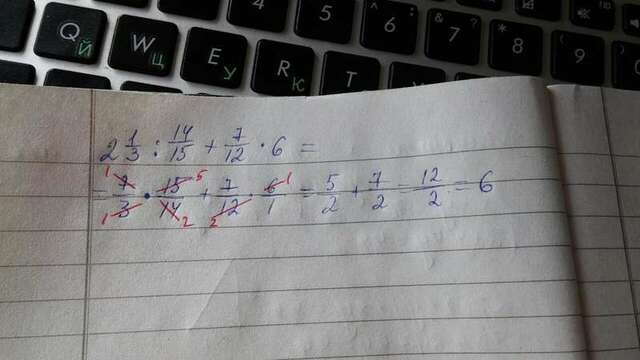 4 5 6 7 8 9
Q Й W Ц E У R К T
2 1/3 : 14/15 + 7/12 · 6 =
= 7/3 · 15/14 + 7/12 · 6/1 = 5/2 + 7/2 = 12/2 = 6
1 5 1
1 2 2